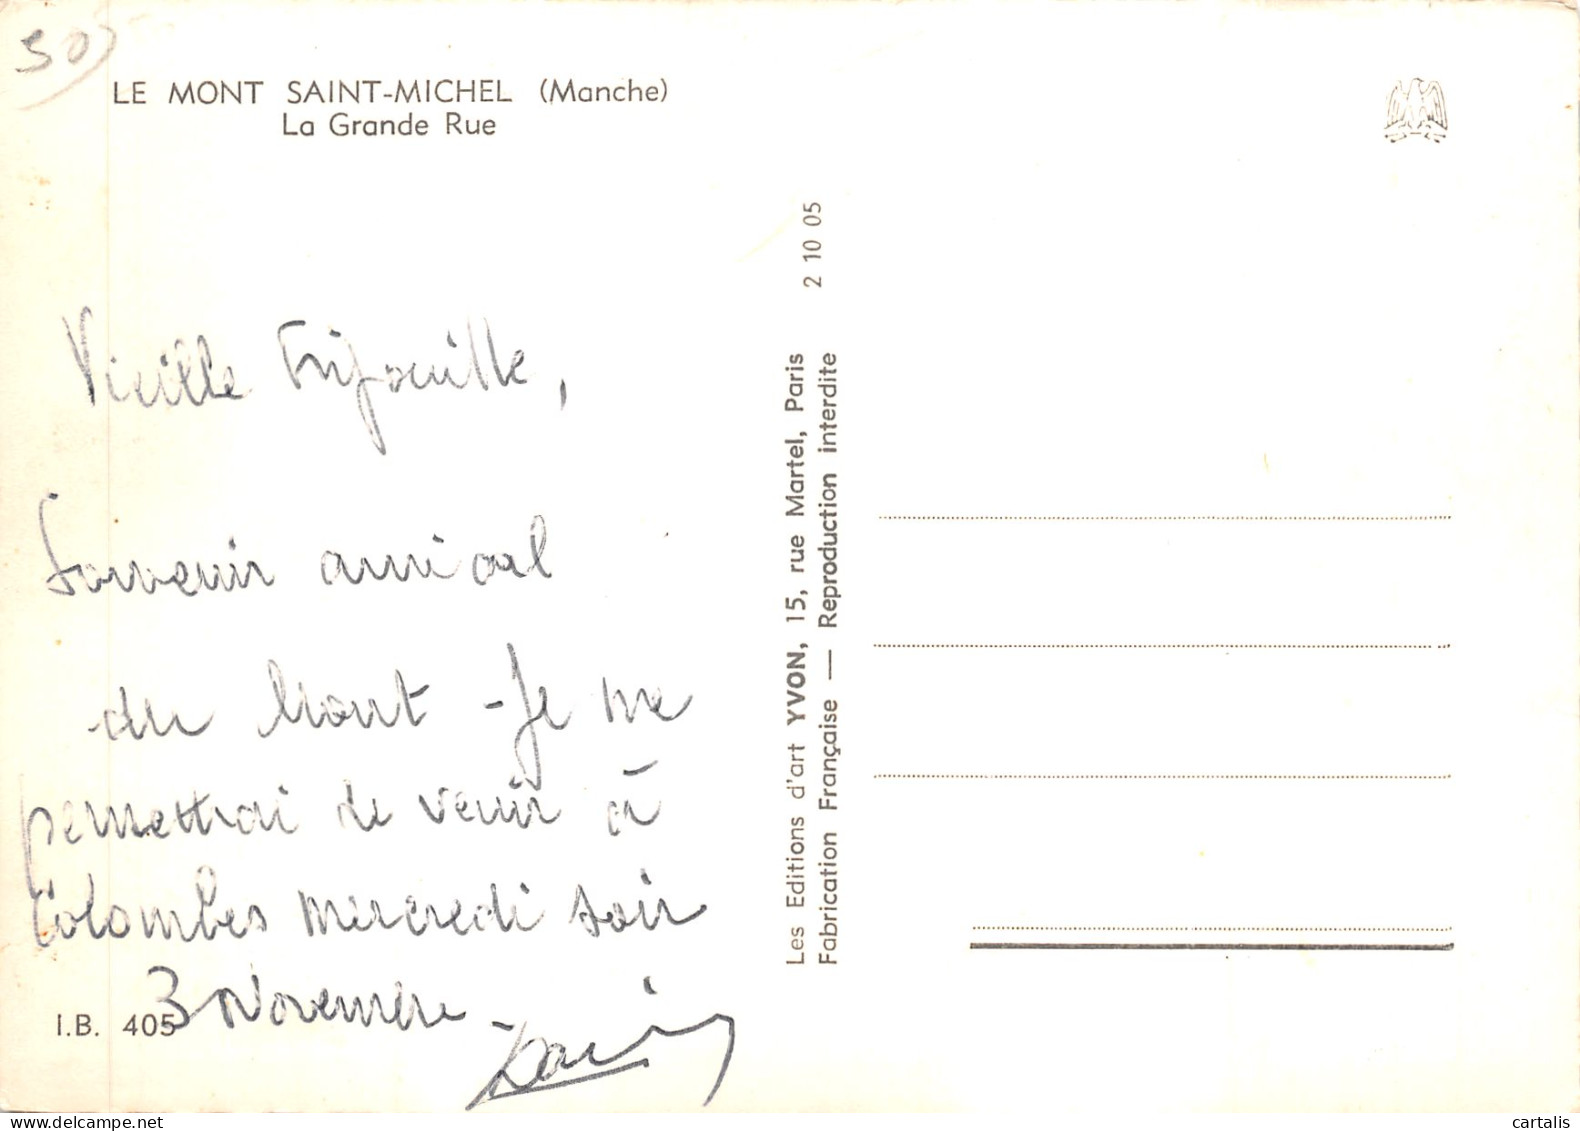 50
LE MONT SAINT-MICHEL (Manche)
La Grande Rue
Vieille Frijouille,
Souvenir amical
du Mont - Je me
permettrai de venir à
Colombes mercredi soir
3 Novembre
I.B. 405
Les Editions d'art YVON, 15, rue Martel, Paris 2 10 05
Fabrication Française — Reproduction interdite
cartalis